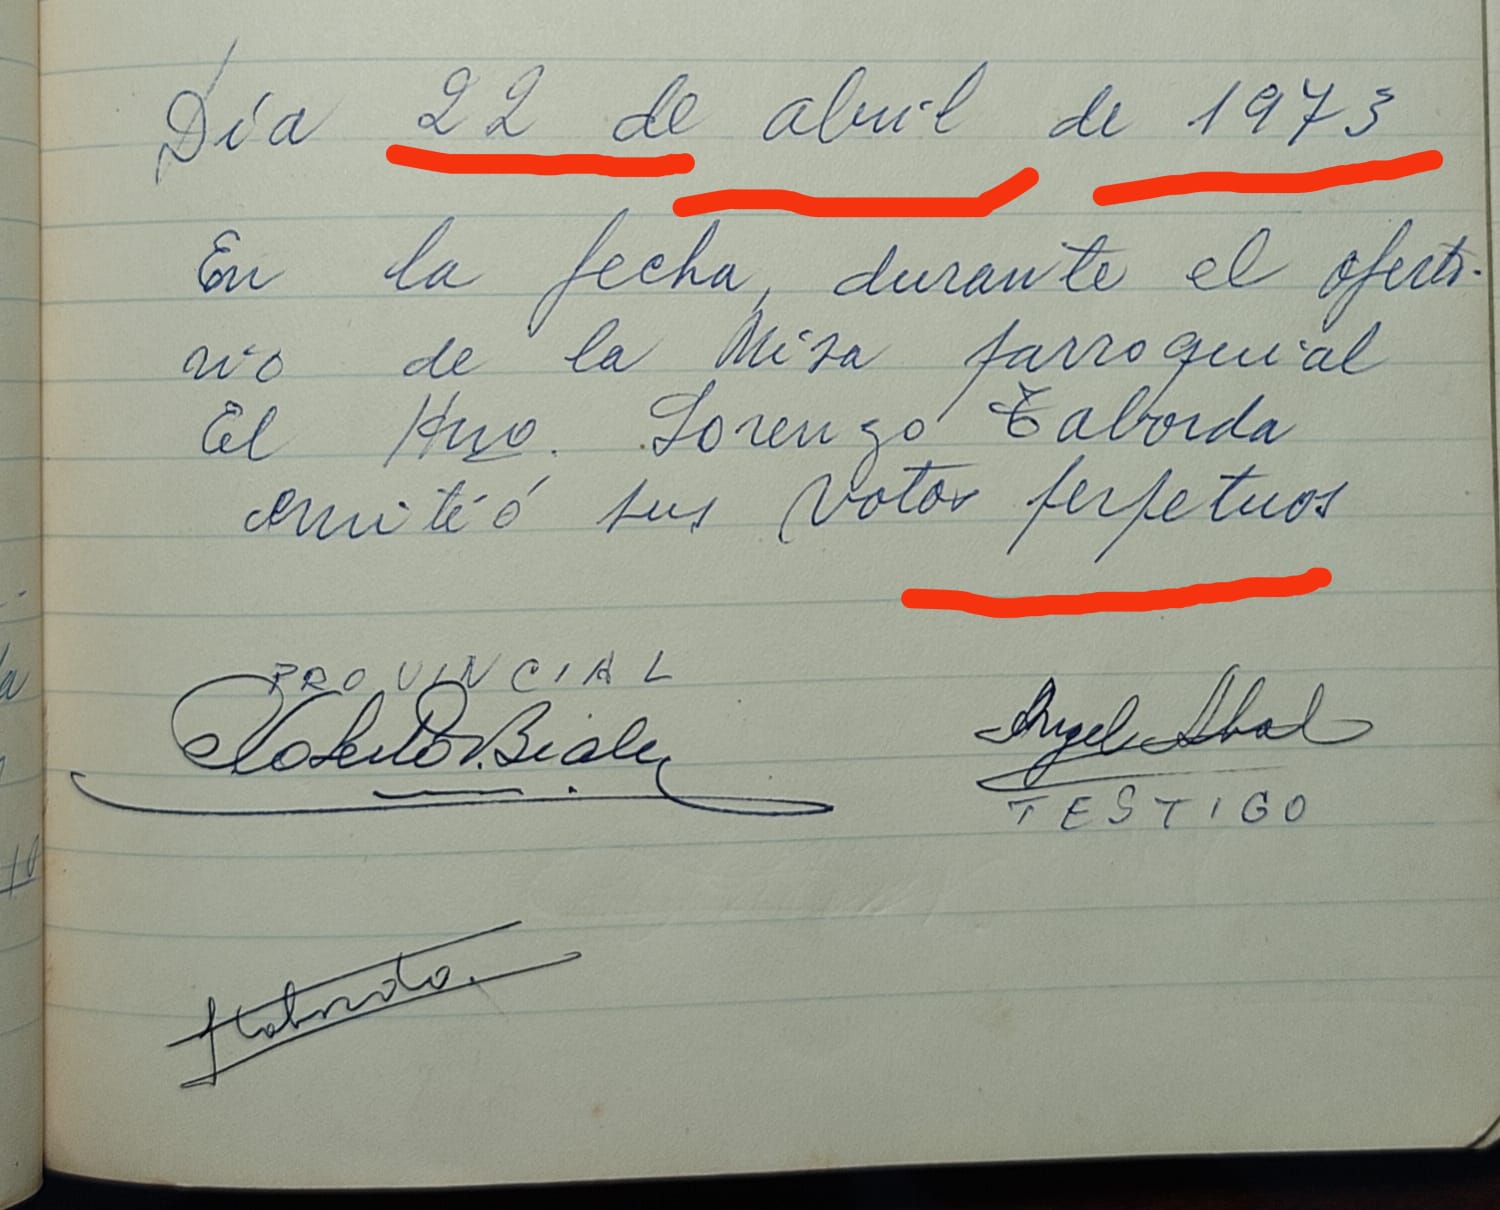 Día 22 de abril de 1973
En la fecha, durante el oferto-
rio de la Misa parroquial
El Hno. Lorenzo Taborda
emitió sus votos perpetuos
PROVINCIAL
Angel Abad
TESTIGO
Taborda